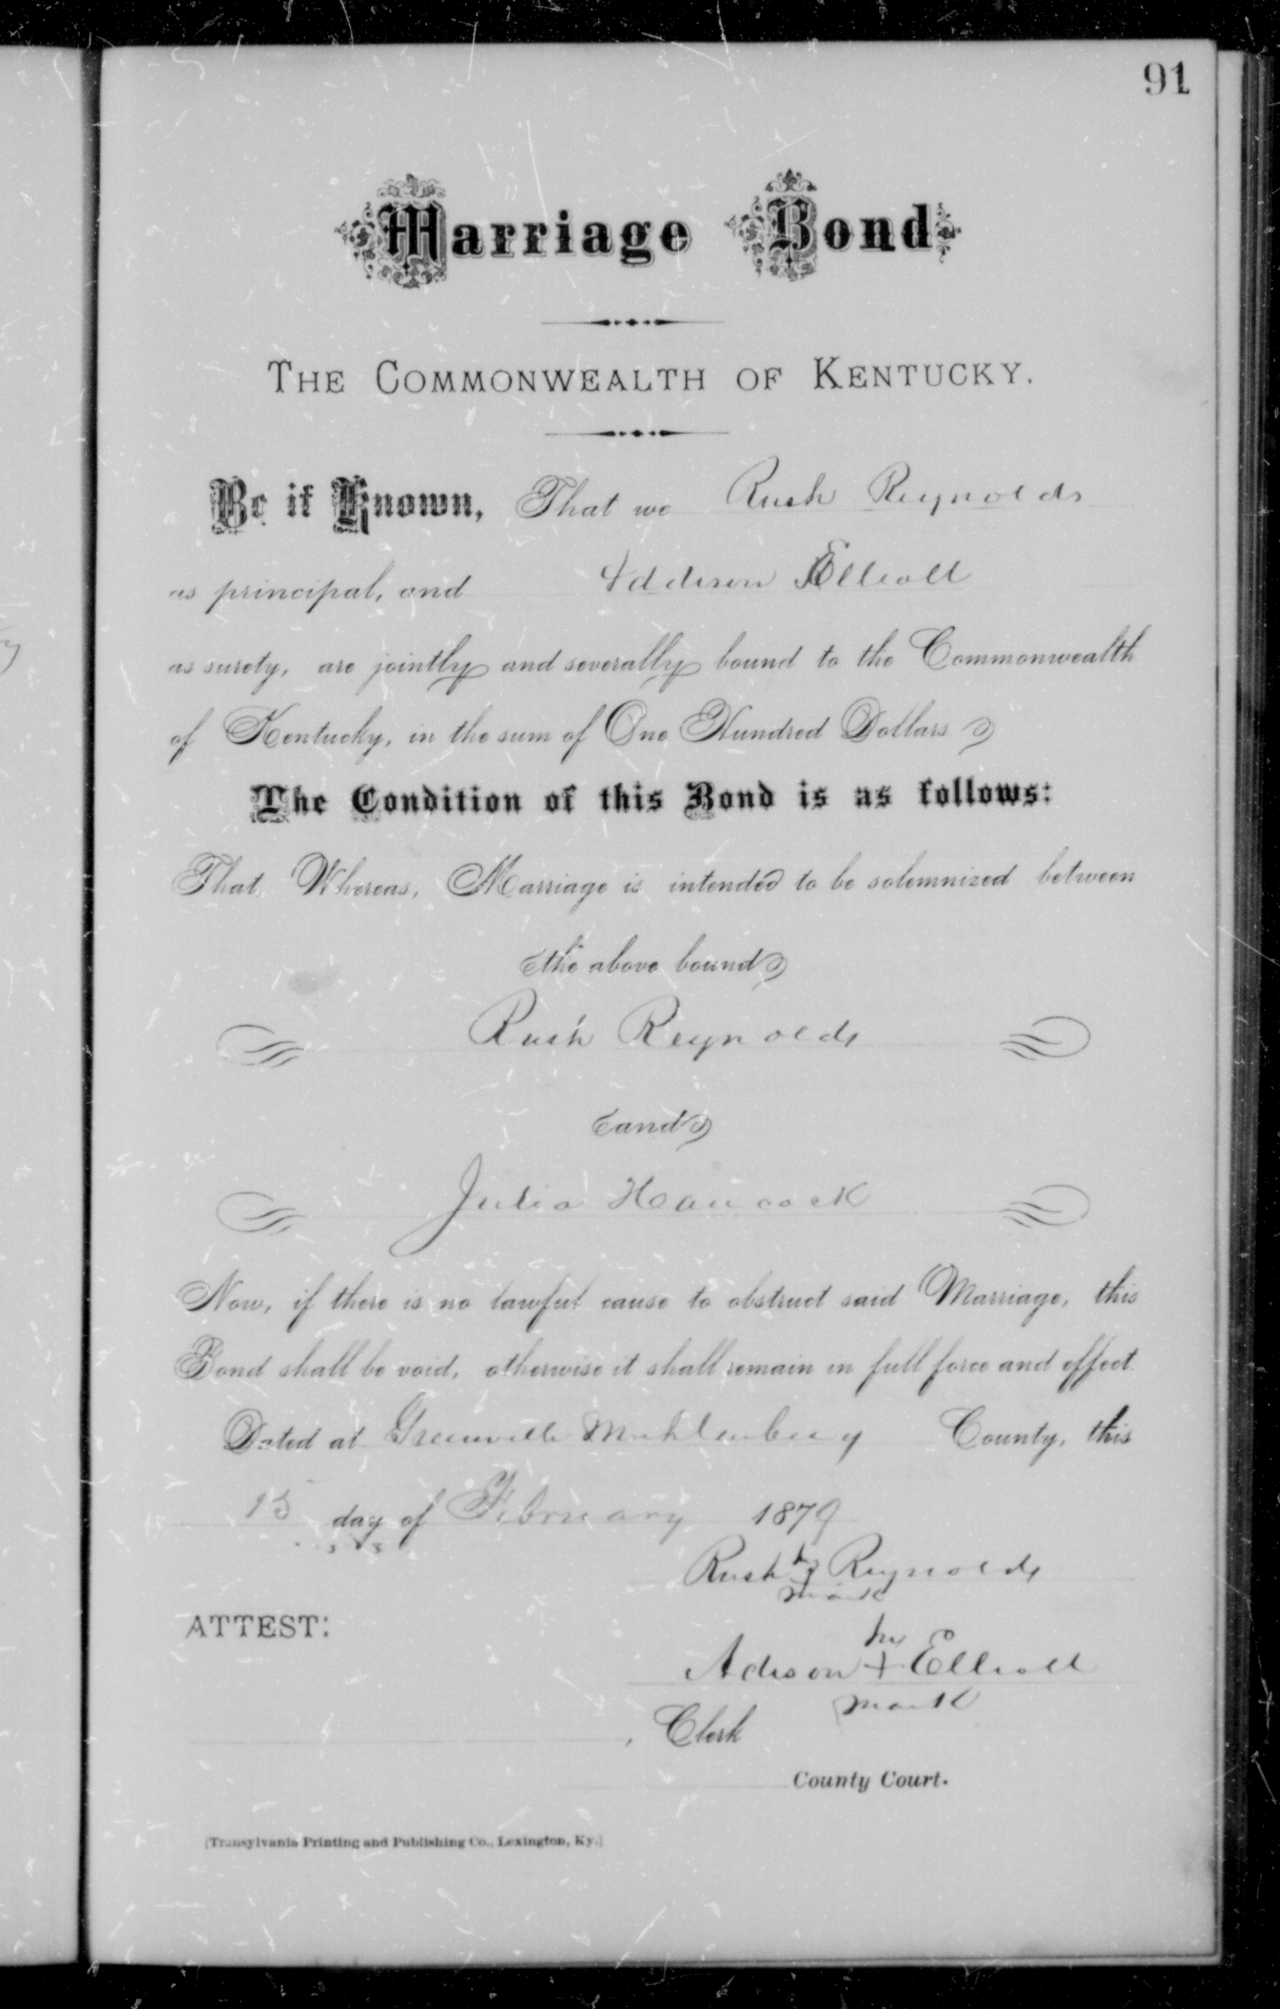 91
Marriage Bond
THE COMMONWEALTH OF KENTUCKY.
Be it Known, That we Rush Reynolds
as principal, and Addison Elliott
as surety, are jointly and severally bound to the Commonwealth
of Kentucky, in the sum of One Hundred Dollars.
The Condition of this Bond is as follows:
That, Whereas, Marriage is intended to be solemnized between
the above bound
Rush Reynolds
and
Julia Hancock
Now, if there is no lawful cause to obstruct said Marriage, this
Bond shall be void, otherwise it shall remain in full force and effect.
Dated at Greenville Muhlenberg County, this
15 day of February 1879
Rush Reynolds
mark
ATTEST:
his
Adison + Elliott
mark
, Clerk
County Court.
[Transylvania Printing and Publishing Co., Lexington, Ky.]